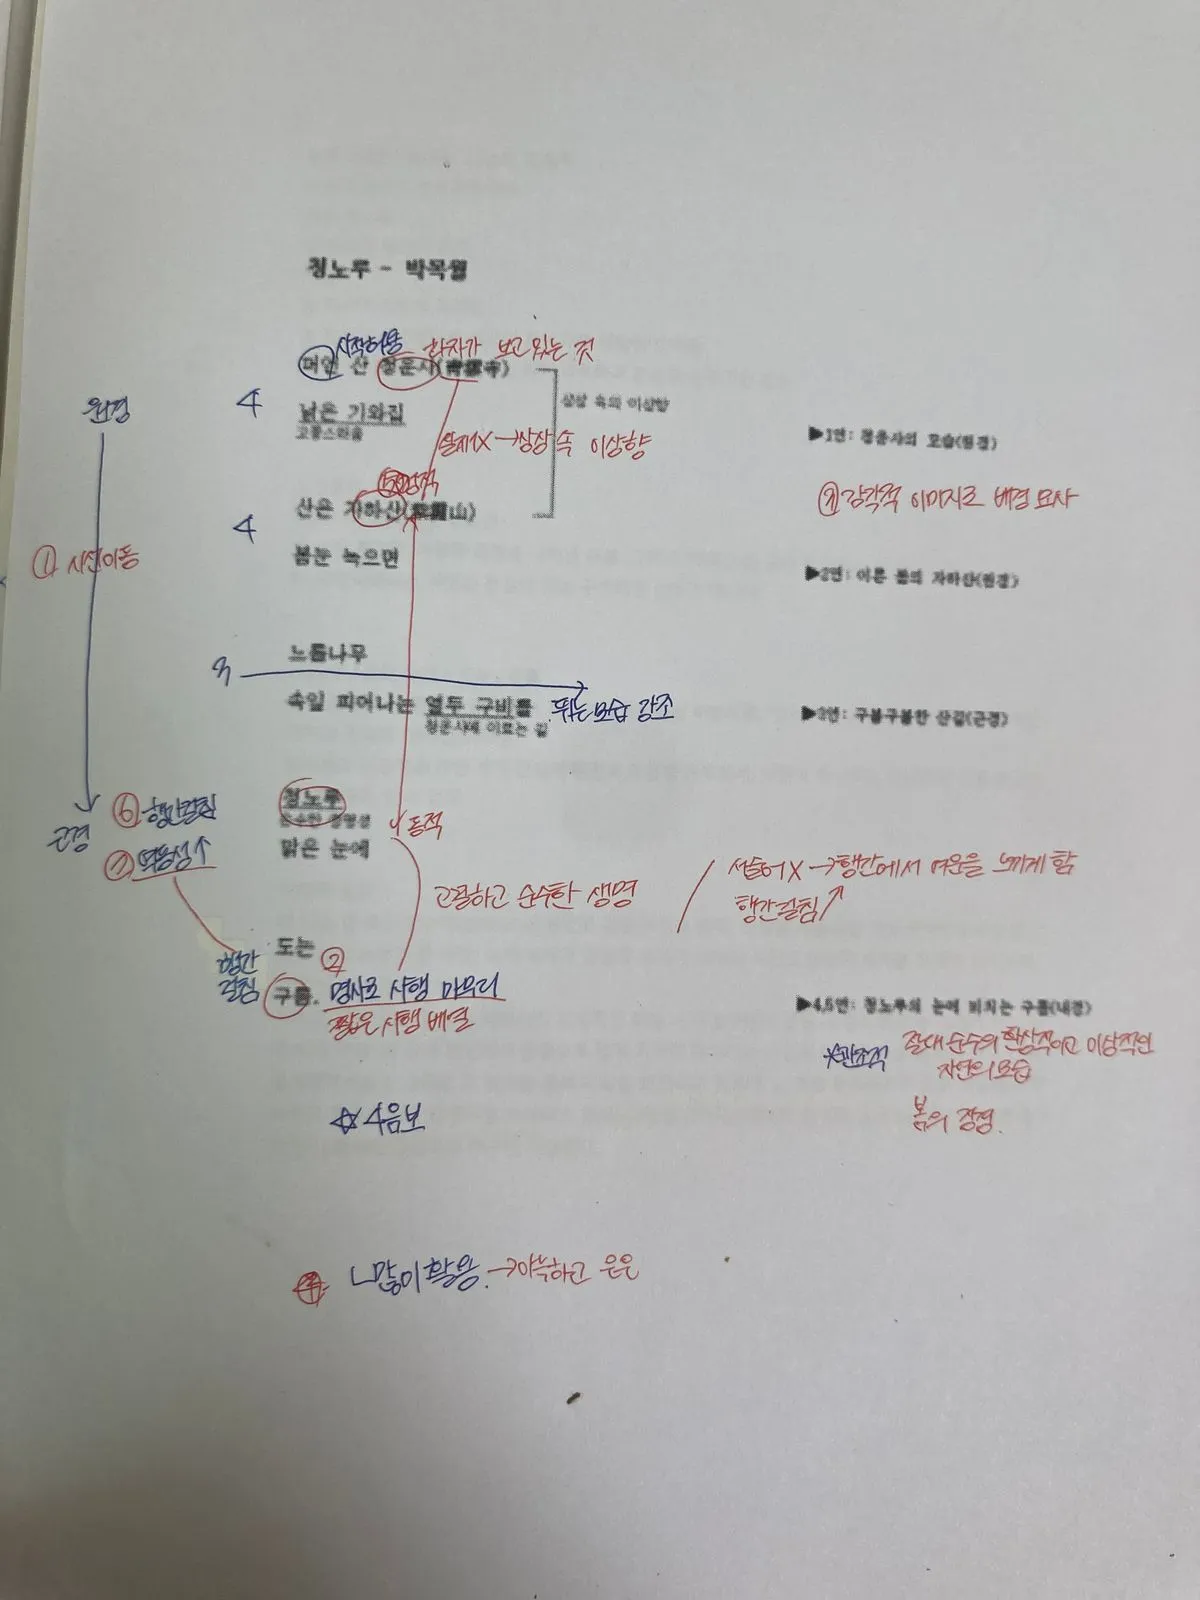 청노루 - 박목월
시적허용 화자가 보고 있는 것
머언 산 청운사(靑雲寺)
4
낡은 기와집
고풍스러움
상상 속의 이상향
실재X →상상 속 이상향
원경
▶1연: 청운사의 모습(원경)
정적
산은 자하산(紫霞山)
4
③ 감각적 이미지로 배경 묘사
봄눈 녹으면
① 시선이동
▶2연: 이른 봄의 자하산(원경)
느릅나무
3
속잎 피어나는 열두 구비를 뛰는 모습 강조
청운사에 이르는 길
▶3연: 구불구불한 산길(근경)
청노루
순수한 생명성
동적
근경
⑥ 행간걸침
⑦ 역동성↑
맑은 눈에
고결하고 순수한 생명
서술어X →행간에서 여운을 느끼게 함
행간걸침↗
도는
행간
걸침
②
구름. 명사로 시행 마무리
짧은 시행 배열
▶4,5연: 청노루의 눈에 비치는 구름(내경)
*관조적 절대 순수의 환상적이고 이상적인
자연의 모습
봄의 정경.
☆ 4음보
④ ㄴ많이 활용. →아늑하고 은은